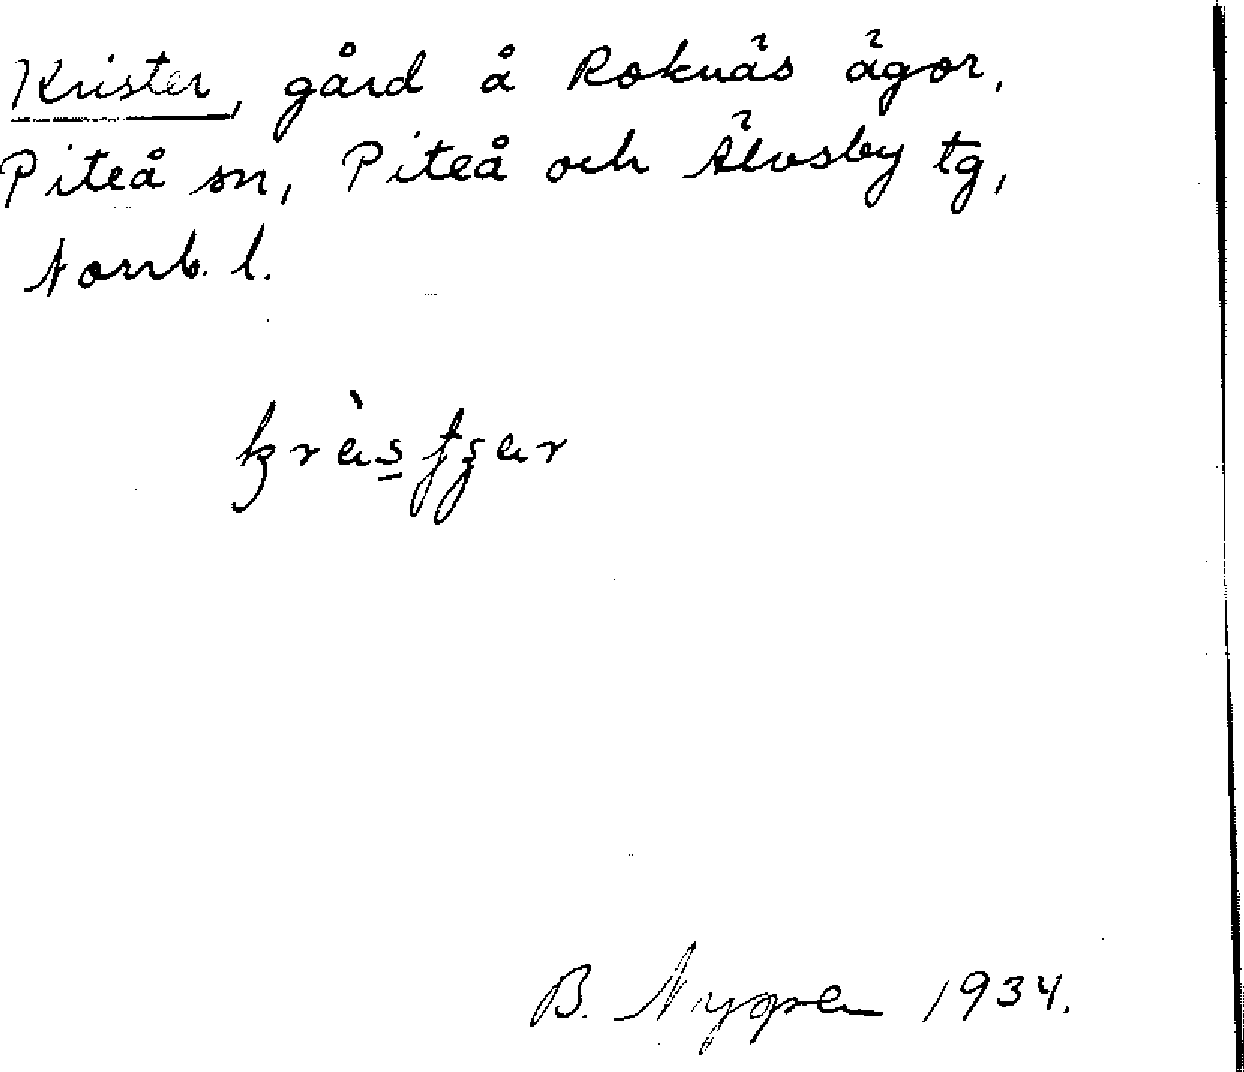 Krister, gård å Roknäs ägor,
Piteå sn, Piteå och Älvsby tg,
Norrb. l.
B. Nygren 1934.